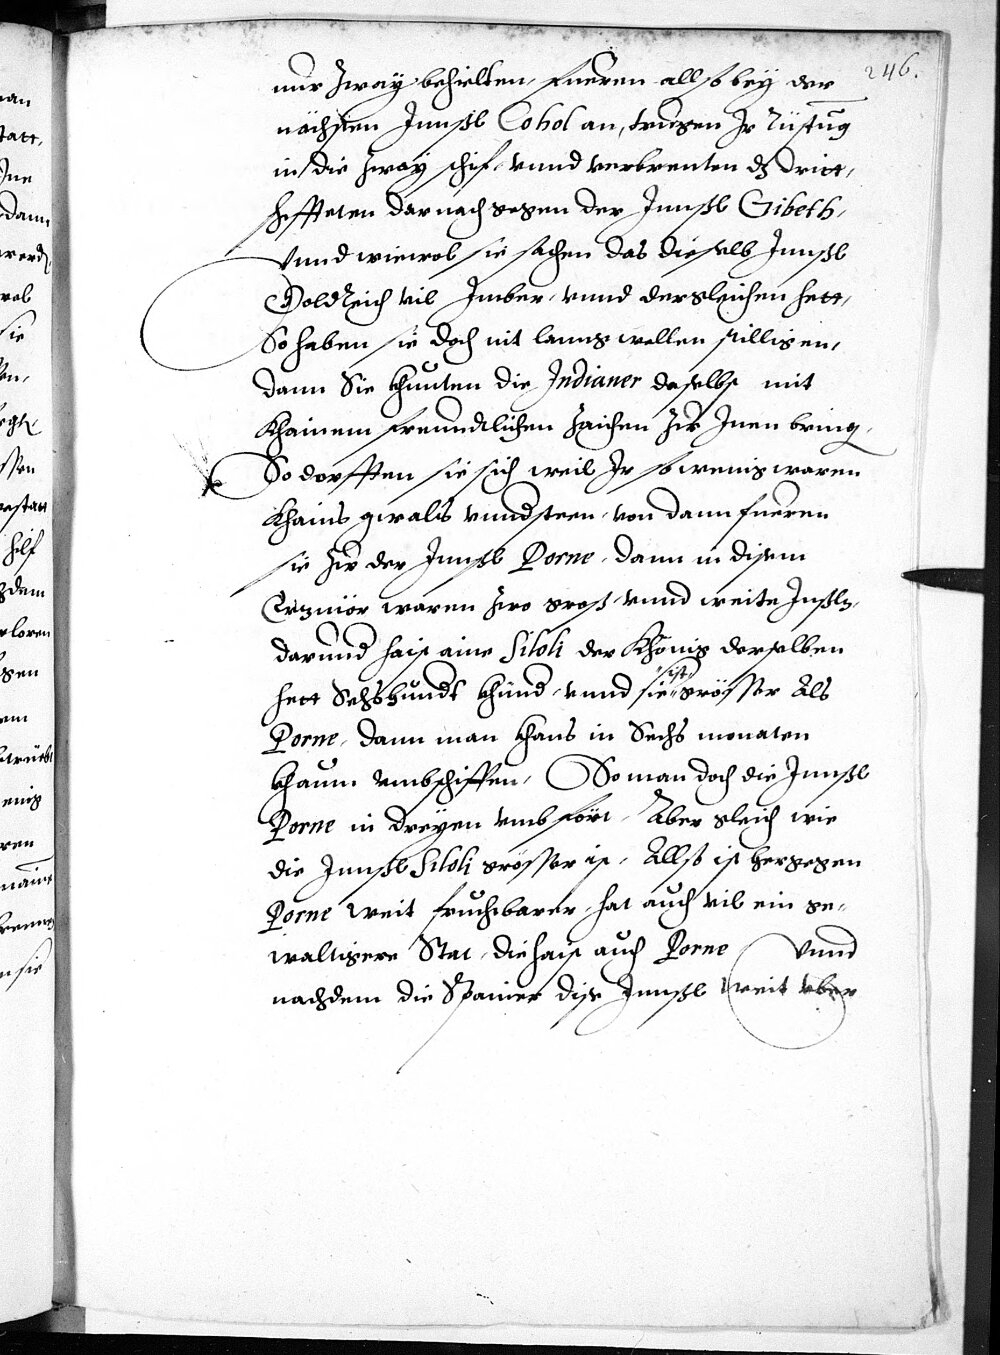 246.
nur Zway behielten, fueren allso bey der
nächsten Jnnsl Cohol an, trugen Jr Rüstu̅g
in die Zway schif, vnnd verbrenten dz dritt,
schifften darnach gegen der Jnnsl Gibeth,
Vnnd wiewol sie sachen das dieselb Jnnsl
Goldreich vil Jmber, vnnd dergleichen hett,
So haben sie doch nit lanng wellen stilligen,
dann Sie khunten die Indianer daselbs mit
Khainem freundtlichen Zaichen Zu Jnen bring,
So dorfften sie sich weil Jr so wenig waren
Khains gwalts vnndersteen, von dann fueren
sie Zu der Jnnsl Porne, dann in disem
waren Zwo gross vnnd weite Jnsln,
darunnd haist aine Siloli der Khönig derselben
hett Sechshundt khind, vnnd sie ist grösser Als
Porne, dann man khans in Sechs monaten
khaum vmbschiffen, So man doch die Jnnsl
Porne in dreyen vmbfört, Aber gleich wie
die Jnnsl Siloli grösser ist, Allso ist hergegen
Porne weit fruchtbarer, hat auch vil ein ge,
waltigere Stat, die haist auch Porne Vnnd
nachdem die Spanier dise Jnnsl weit vber
an
tatt,
Jne
dann
werd
wol
sie
en,
gestatt
hilf
zdem
rloren
gen
em
betrüebt
enig
ren
n sie